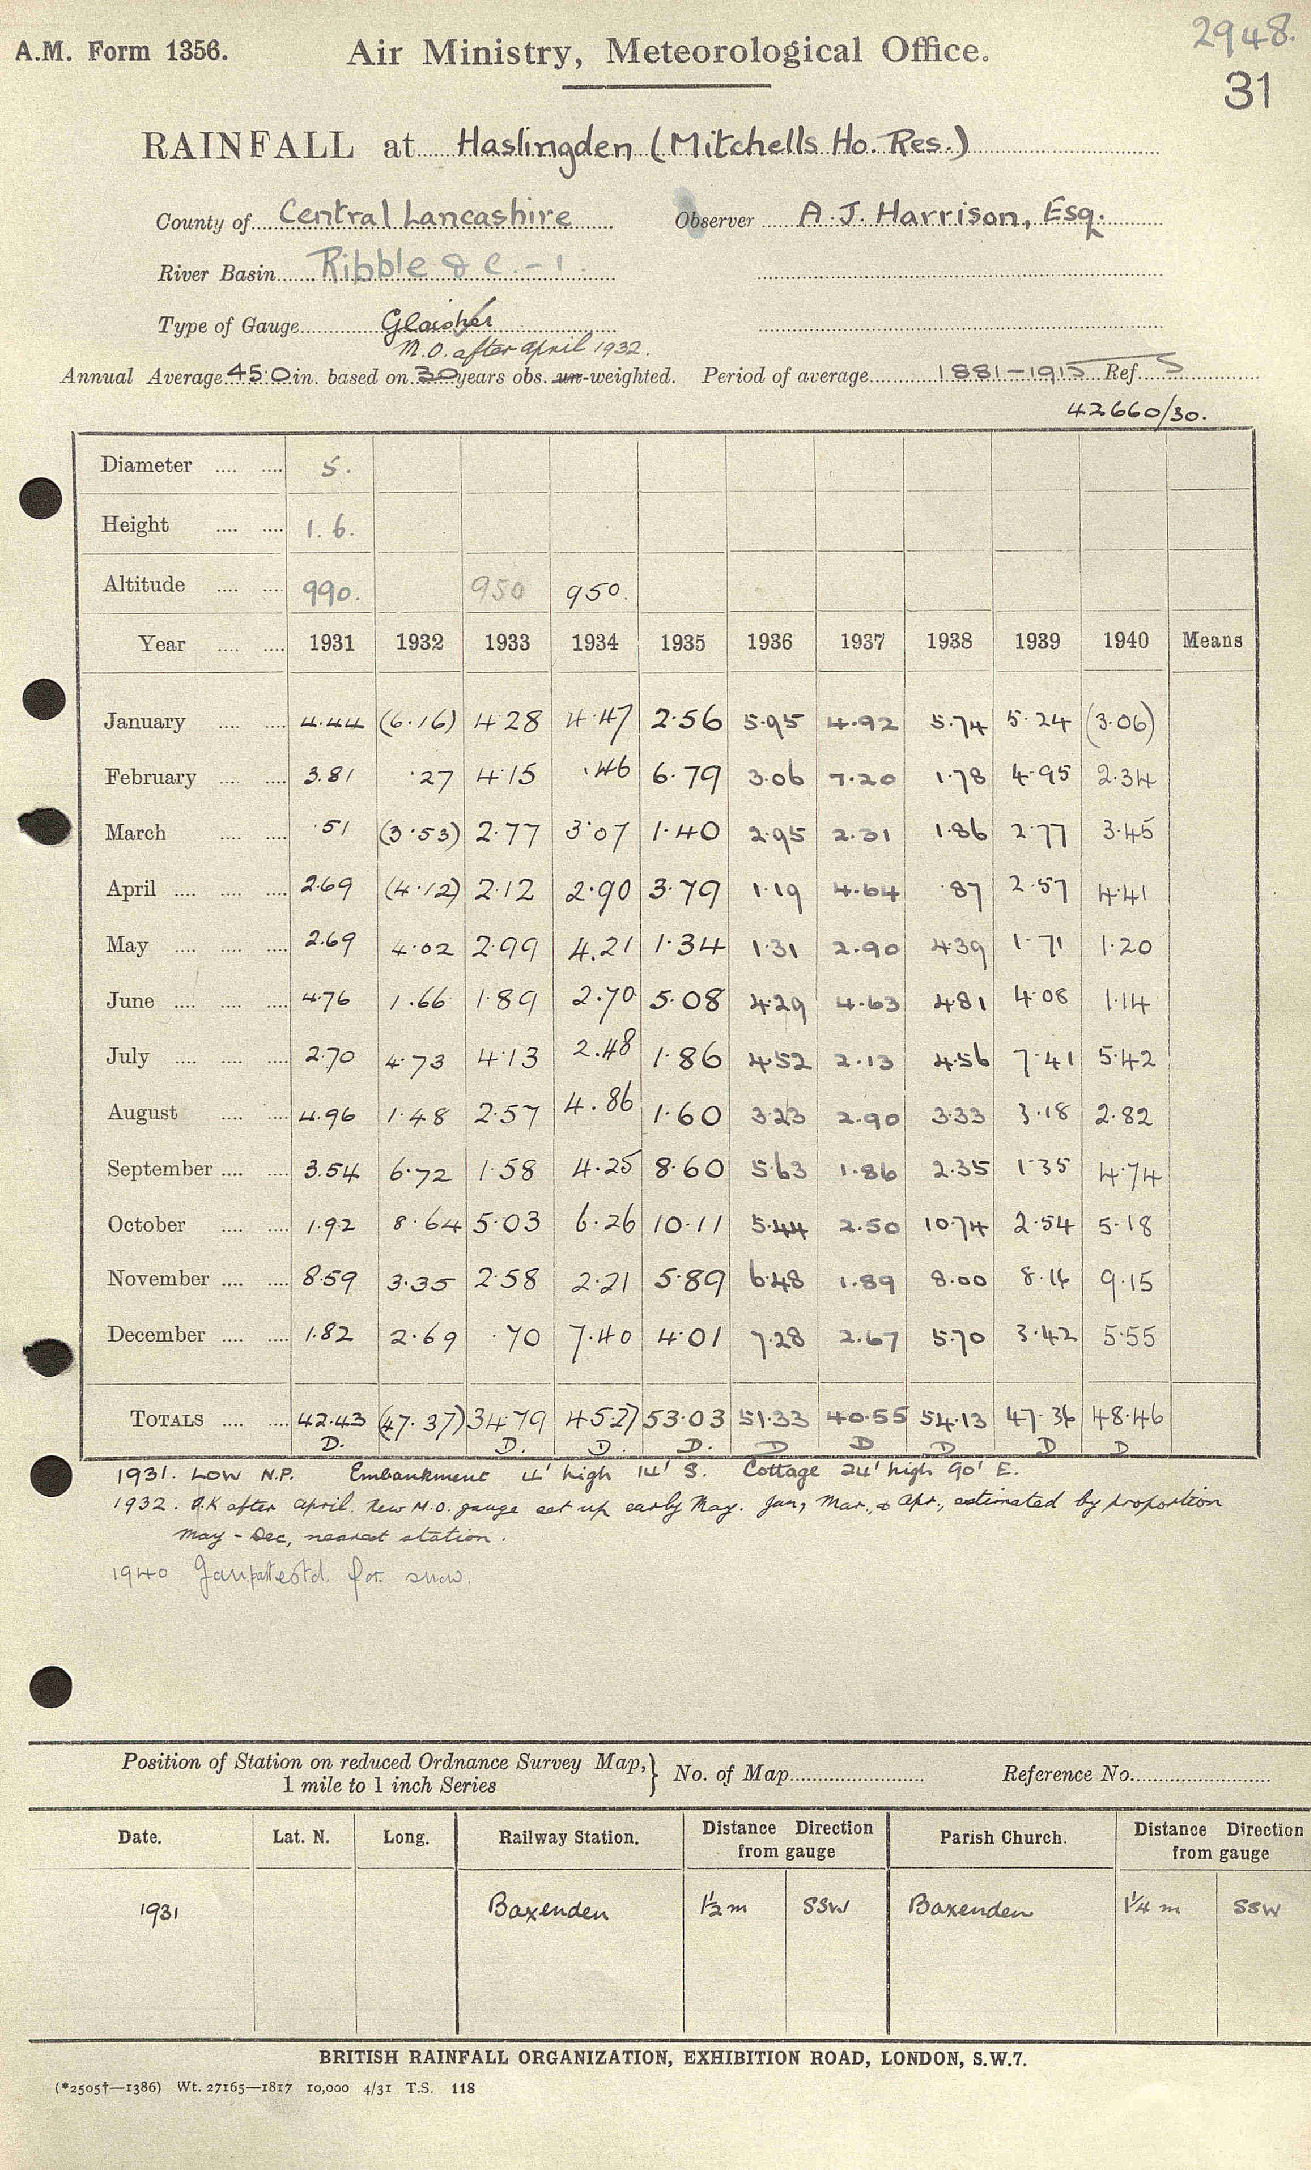 2948.
A.M. Form 1356. Air Ministry, Meteorological Office.
31
RAINFALL at Haslingden (Mitchells Ho. Res.)
County of Central Lancashire Observer A. J. Harrison, Esq.
River Basin Ribble &c. - 1.
Type of Gauge Glaisher
M.O. after April 1932.
Annual Average 45.0 in. based on 30 years obs. un-weighted. Period of average 1881-1915 Ref. S
42660/30.
Diameter 5.
Height 1. 6.
Altitude 990. 950 950.
Year 1931 1932 1933 1934 1935 1936 1937 1938 1939 1940 Means
January 4.44 (6.16) 4.28 4.47 2.56 5.95 4.92 5.74 5.24 (3.06)
February 3.81 .27 4.15 .46 6.79 3.06 7.20 1.78 4.95 2.34
March .51 (3.53) 2.77 3.07 1.40 2.95 2.31 1.86 2.77 3.45
April 2.69 (4.12) 2.12 2.90 3.79 1.19 4.64 .87 2.57 4.41
May 2.69 4.02 2.99 4.21 1.34 1.31 2.90 4.39 1.71 1.20
June 4.76 1.66 1.89 2.70 5.08 4.29 4.63 4.81 4.08 1.14
July 2.70 4.73 4.13 2.48 1.86 4.52 2.13 4.56 7.41 5.42
August 4.96 1.48 2.57 4.86 1.60 3.23 2.90 3.33 3.18 2.82
September 3.54 6.72 1.58 4.25 8.60 5.63 1.86 2.35 1.35 4.74
October 1.92 8.64 5.03 6.26 10.11 5.44 2.50 10.74 2.54 5.18
November 8.59 3.35 2.58 2.21 5.89 6.48 1.89 8.00 8.14 9.15
December 1.82 2.69 .70 7.40 4.01 7.28 2.67 5.70 3.42 5.55
TOTALS 42.43 (47.37) 34.79 45.27 53.03 51.33 40.55 54.13 47.36 48.46
D. D. D. D. D D D D D
1931. LOW N.P. Embankment 4' high 14' S. Cottage 24' high 90' E.
1932. O.K after April. New M.O. gauge set up early May. Jan, Mar., & Apr., estimated by proportion
May - Dec, nearest station.
1940 Jan part estd. for snow.
Position of Station on reduced Ordnance Survey Map,
1 mile to 1 inch Series } No. of Map Reference No.
Date. Lat. N. Long. Railway Station. Distance Direction from gauge Parish Church. Distance Direction from gauge
1931 Baxenden 1½ m SSW Baxenden 1¼ m SSW
BRITISH RAINFALL ORGANIZATION, EXHIBITION ROAD, LONDON, S.W.7.
(*2505†—1386) Wt. 27165—1817 10,000 4/31 T.S. 118